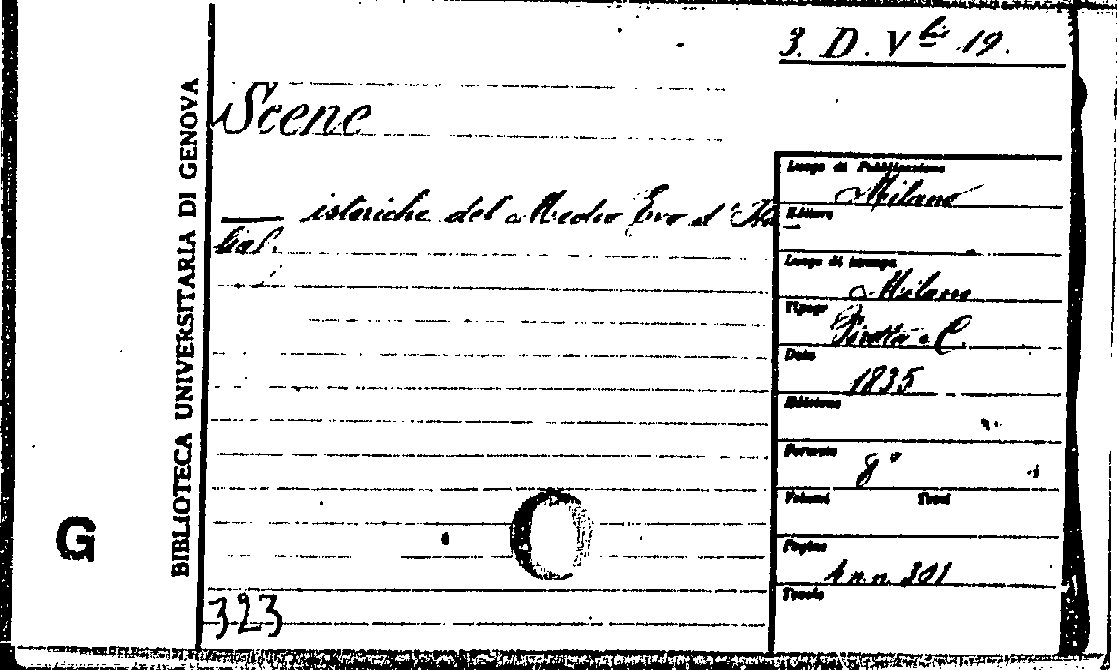 3. D. V bis 19.
Scene
istoriche del Medio Evo d'Ita-
lia.
BIBLIOTECA UNIVERSITARIA DI GENOVA
G
323
Luogo di Pubblicazione
Milano
Editore
Luogo di stampa
Milano
Tipogr
Pirotta e C.
Data
1835
Edizione
Formato
8°
Volumi Tomi
Pagine
4 n.n. 301
Tavole